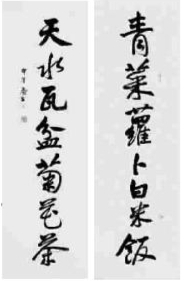 青菜蘿卜白米飯
天水瓦盆菊花茶